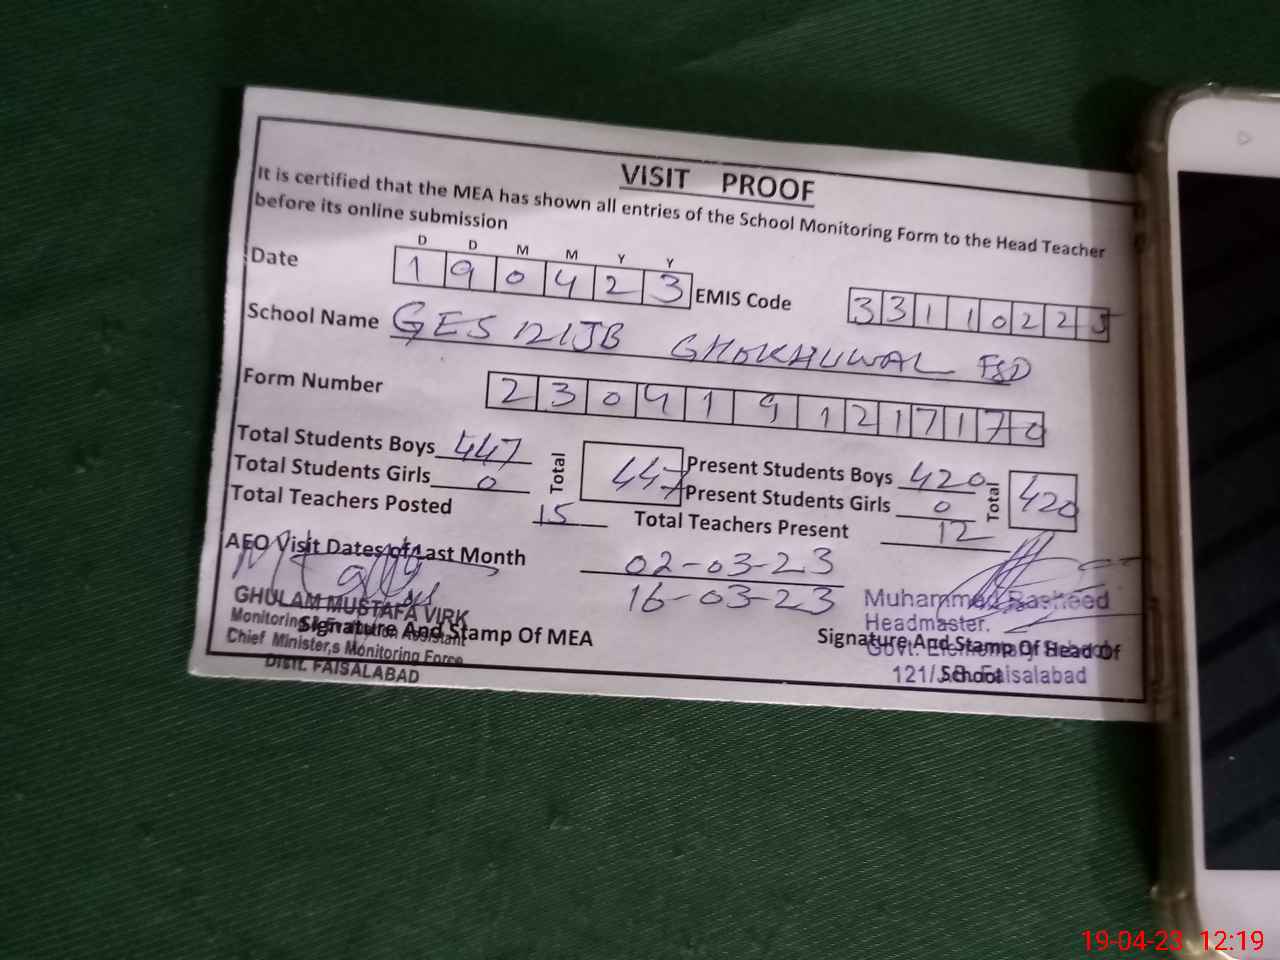 VISIT PROOF
It is certified that the MEA has shown all entries of the School Monitoring Form to the Head Teacher
before its online submission
D D M M Y Y
Date 1 9 0 4 2 3 EMIS Code 3 3 1 1 0 2 2 5
School Name GES 121JB GHOKHUWAL FSD
Form Number 2 3 0 4 1 9 1 2 1 7 1 7 0
Total Students Boys 447 Total 447 Present Students Boys 420 Total 420
Total Students Girls 0 Present Students Girls 0
Total Teachers Posted 15 Total Teachers Present 12
AEO Visit Dates of Last Month 02-03-23
16-03-23
GHULAM MUSTAFA VIRK
Monitoring & Evaluation Assistant
Chief Minister,s Monitoring Force
Distt. FAISALABAD
Signature And Stamp Of MEA
Muhammed Rasheed
Headmaster.
Govt. Elementary School
121/J.B. Faisalabad
Signature And Stamp Of Head Of
School
19-04-23 12:19